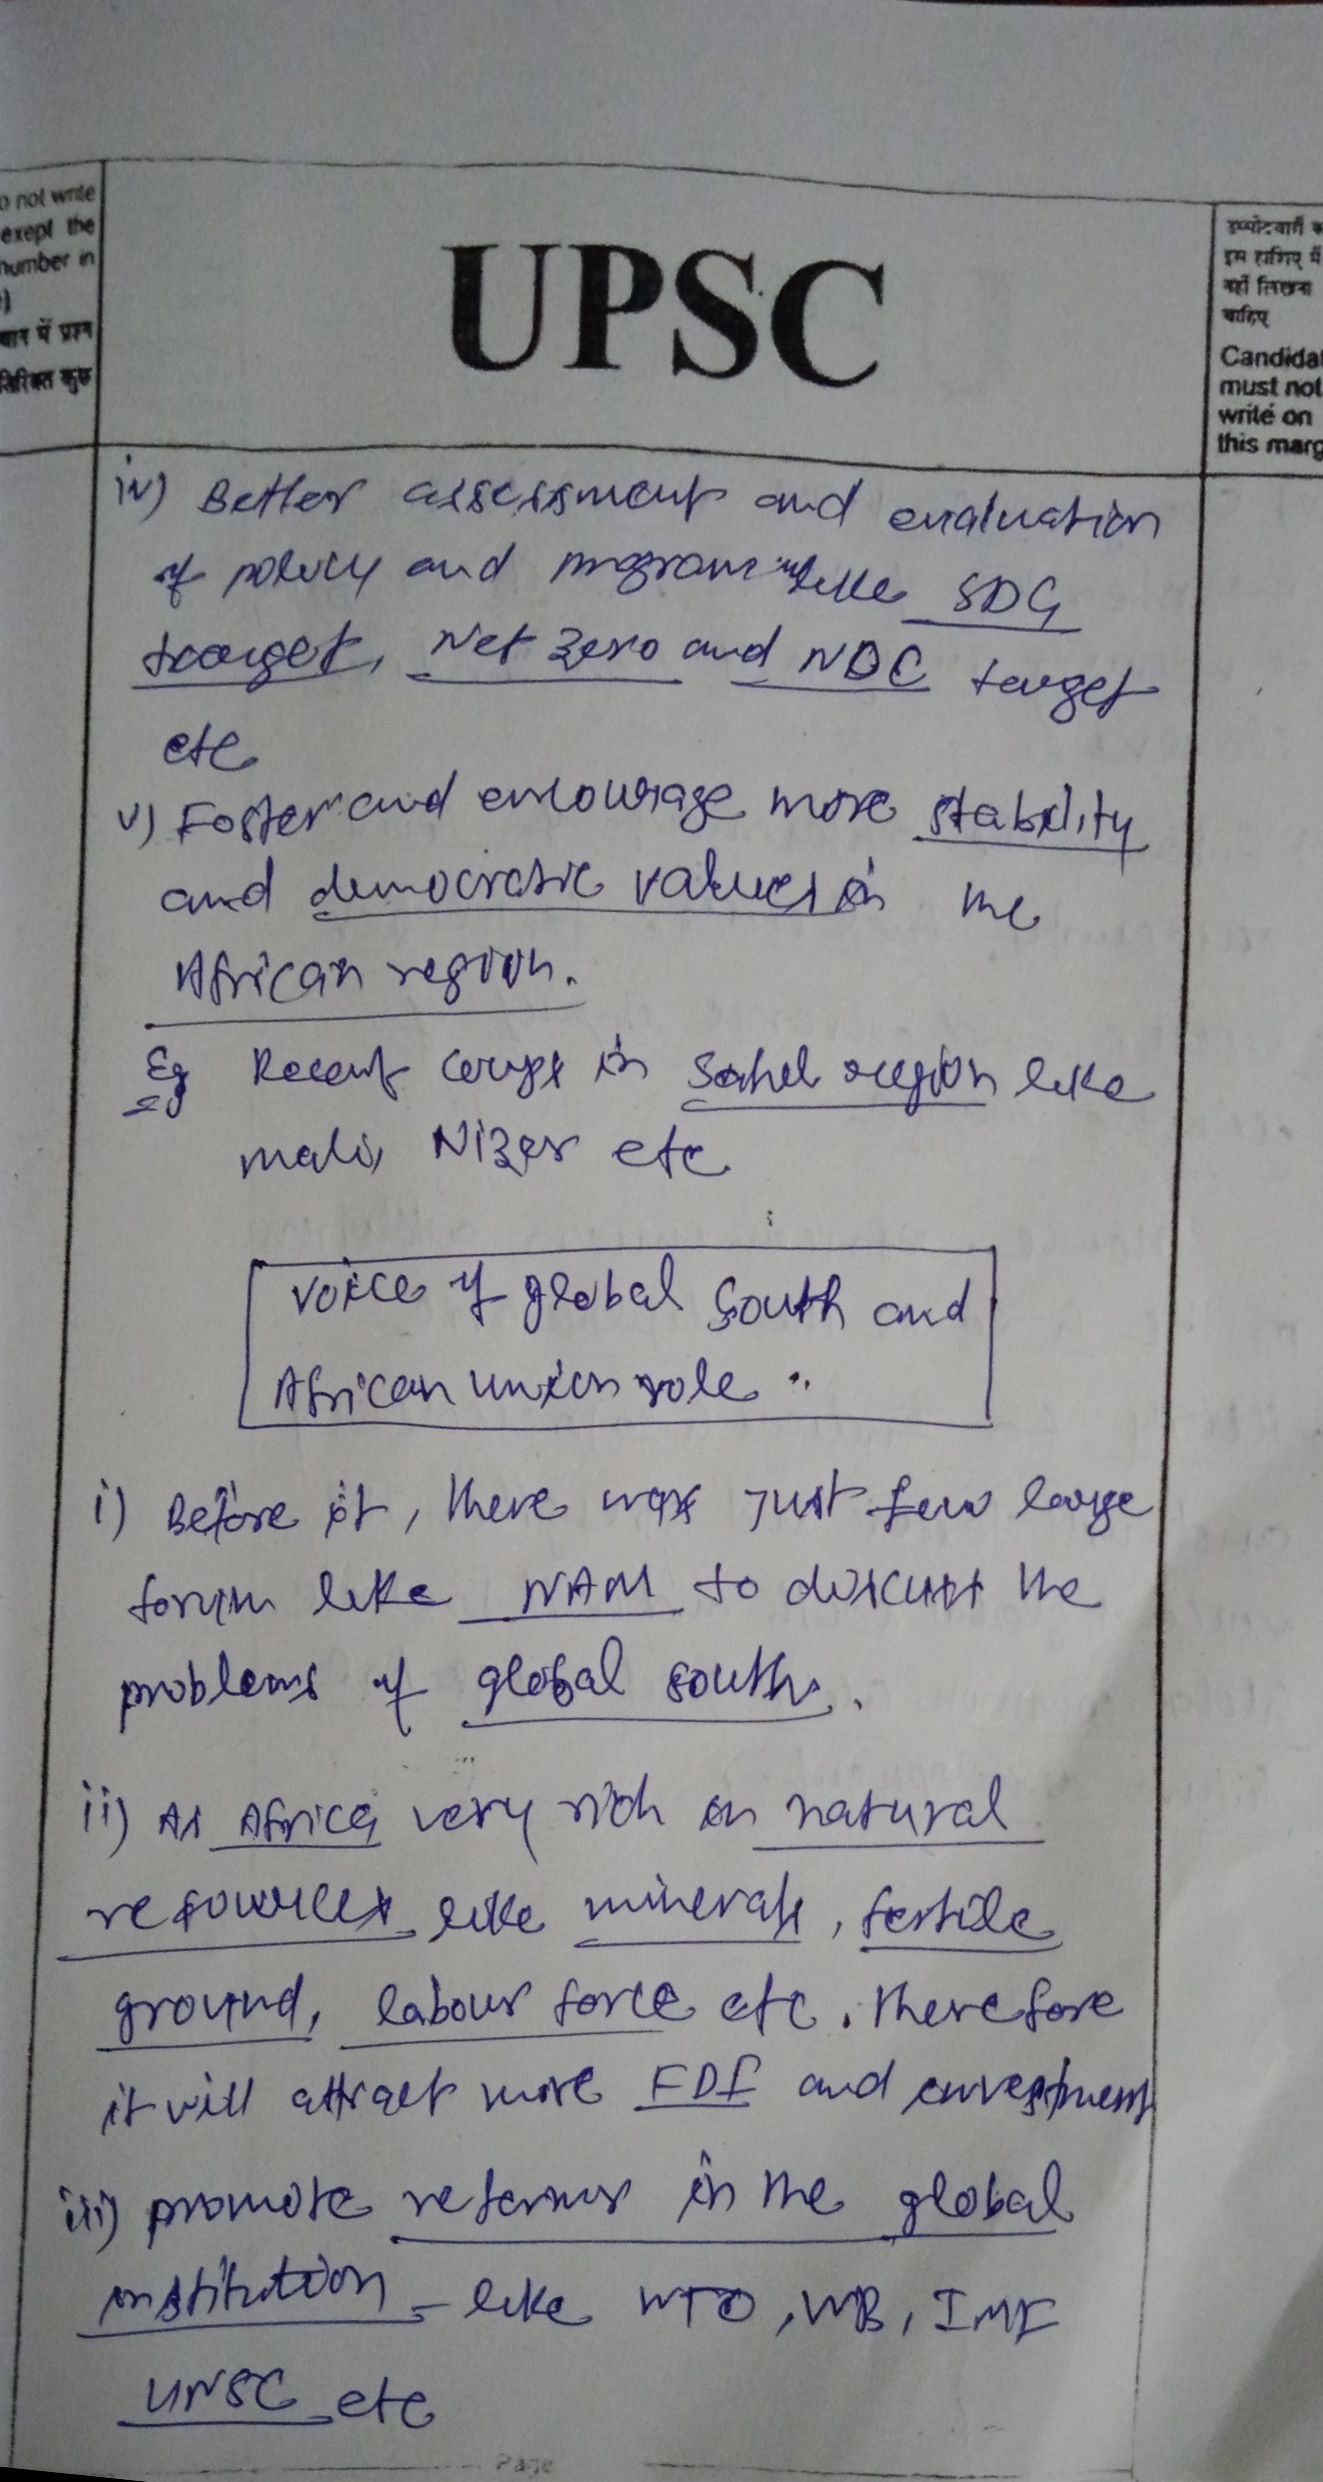 o not write
exept the
number in
)
थान में प्रश्न
तिरिक्त कुछ
UPSC
उम्मीदवारों क
इस हाशिए में
नहीं लिखना
चाहिए
Candidat
must not
write on
this marg
iv) Better assessment and evaluation
of policy and program like SDG
target, Net Zero and NDC target
etc
v) Foster and encourage more stability
and democratic values in the
African region.
Eg Recent coups in Sahel region like
mali, Nizer etc
Voice of global South and
African union role :
i) Before it, there was just few large
forum like NAM to discuss the
problems of global south.
ii) As Africa very rich in natural
resources like minerals, fertile
ground, labour force etc. therefore
it will attract more FDI and investment
iii) promote reforms in the global
institution - like WTO, WB, IMF
UNSC etc
Page